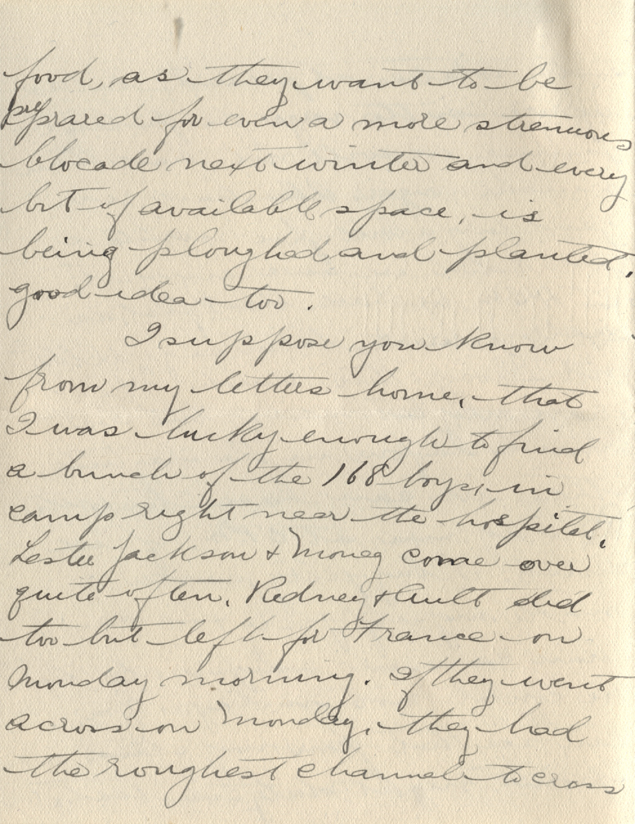 food, as they want to be
prepared for even a more strenuous
blocade next winter and every
bit of available space, is
being ploughed and planted,
good idea too.
I suppose you know
from my letters home, that
I was lucky enough to find
a bunch of the 168 boys, in
camp right near the hospital.
Lester Jackson & Money come over
quite often. Redney & Ault did
too but left for France on
Monday morning. If they went
across on Monday, they had
the roughest channel to cross